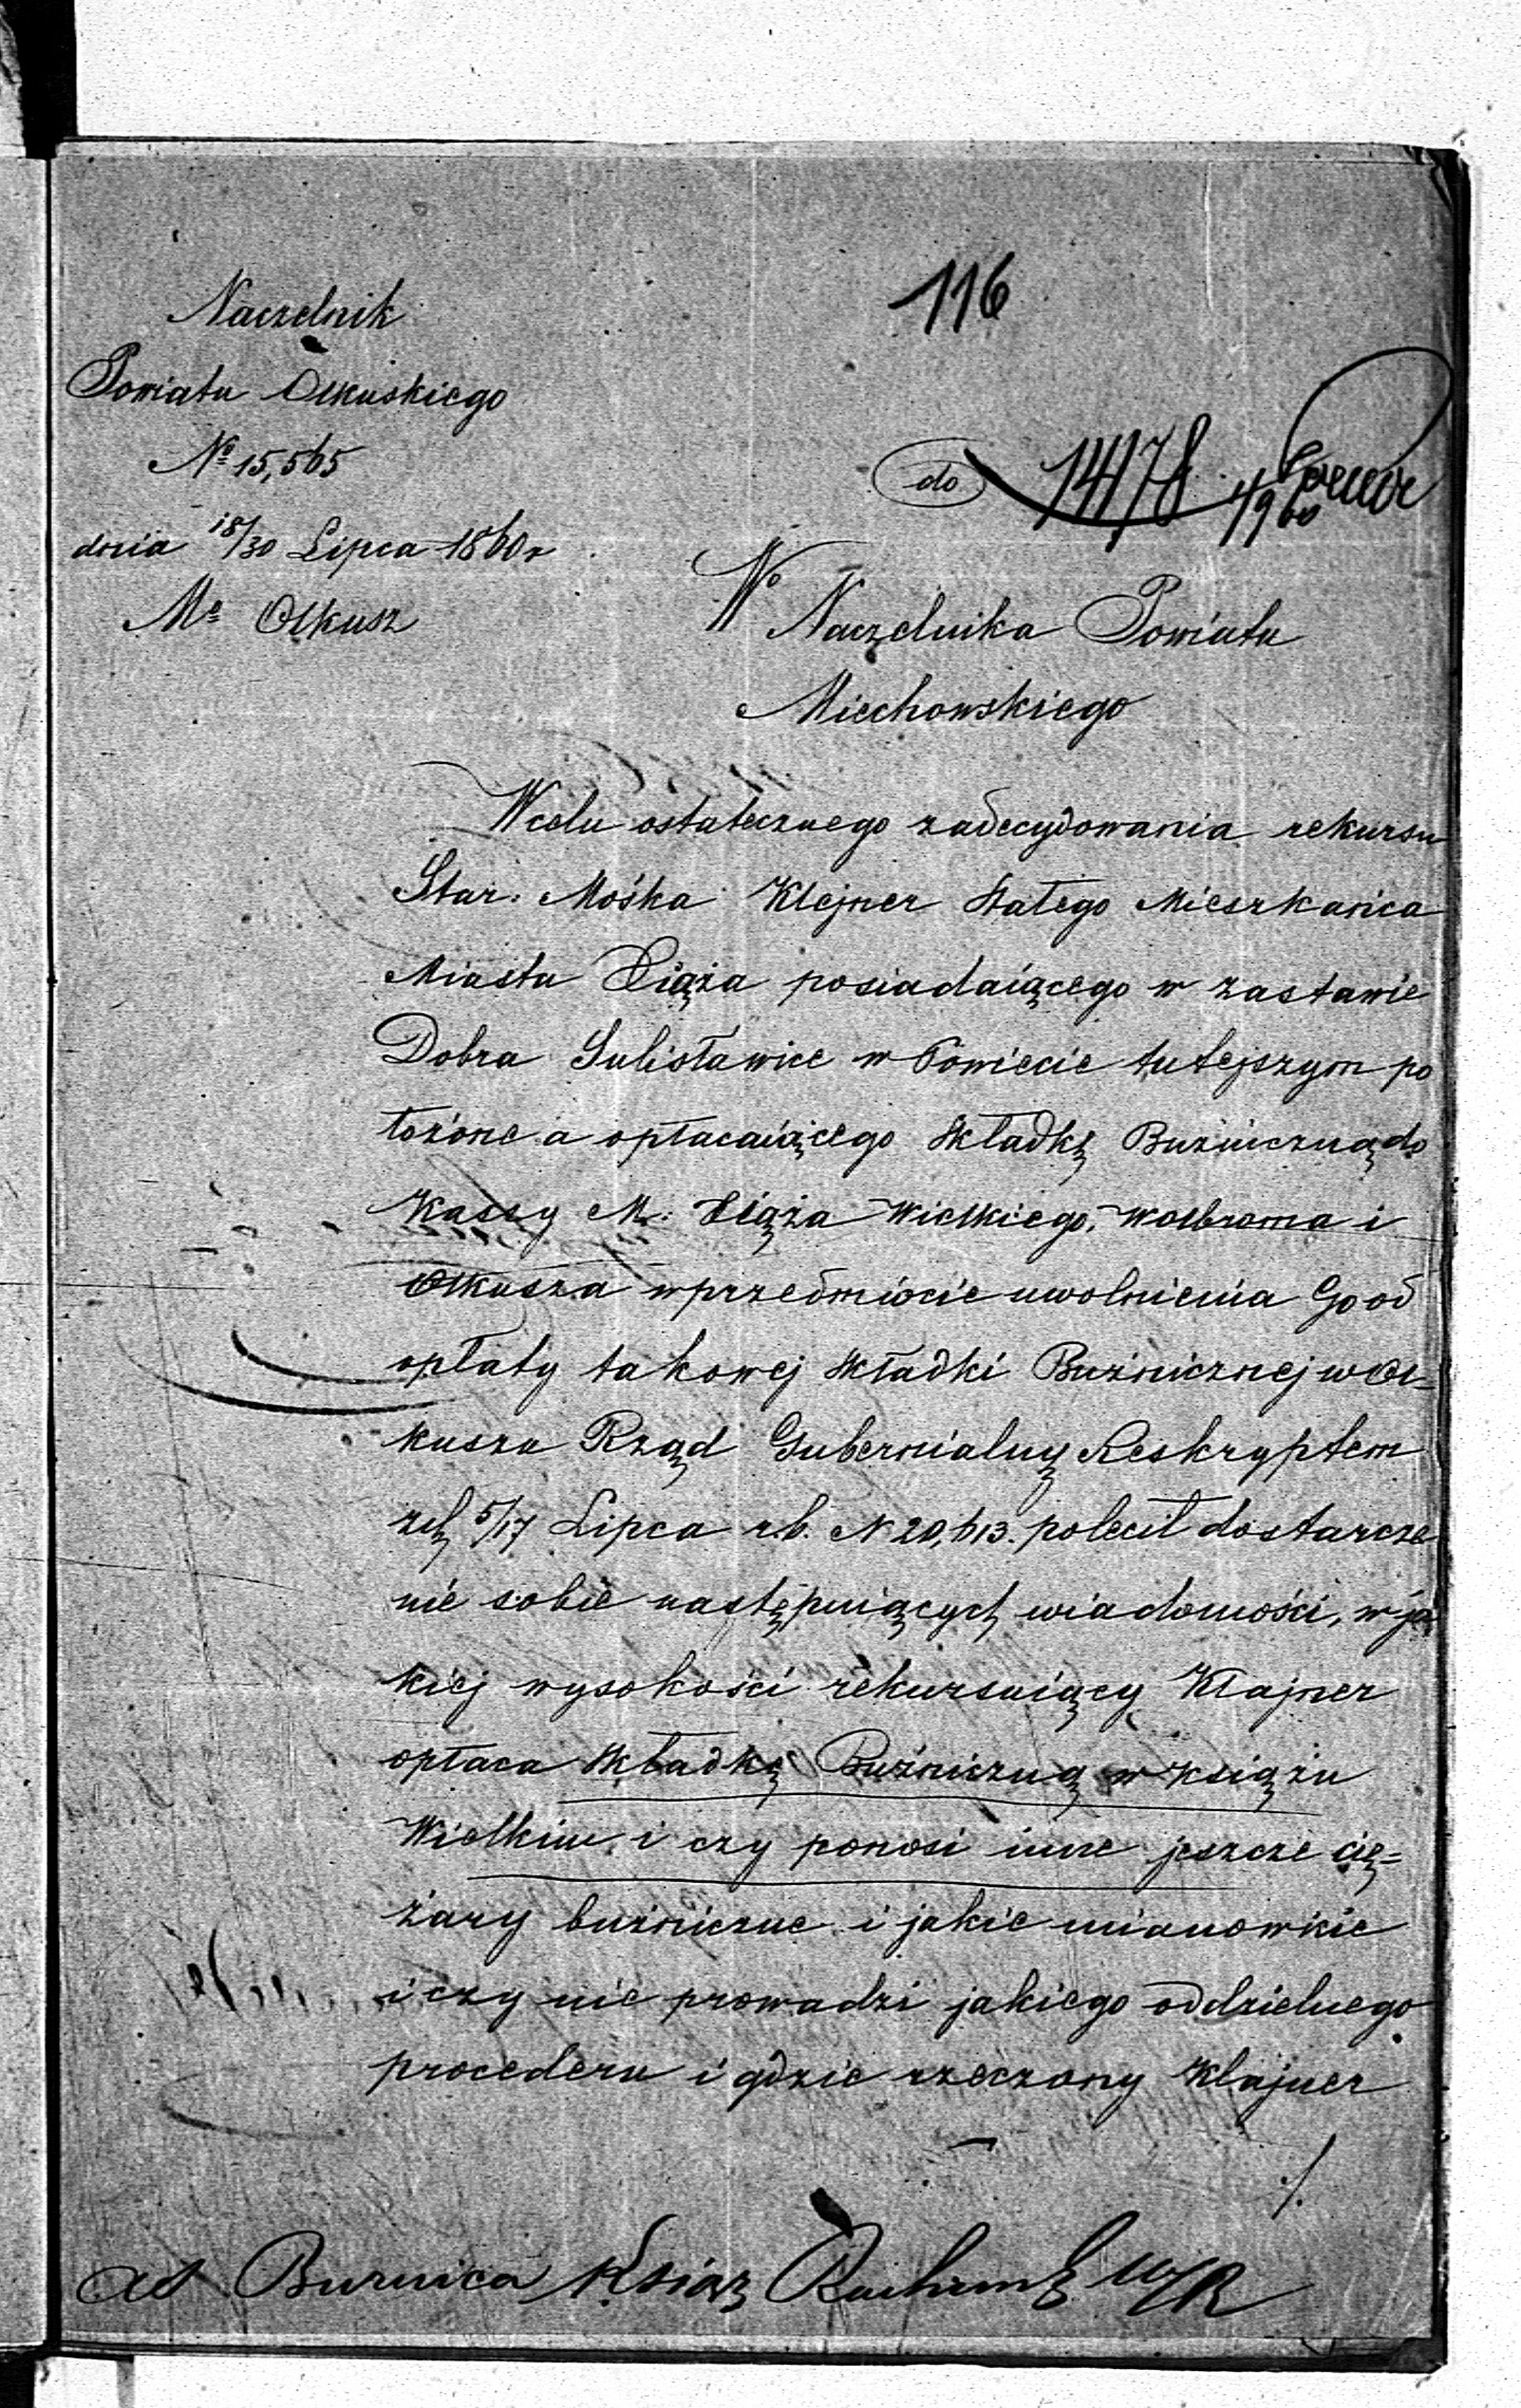 116
Naczelnik
Powiatu Olkuskiego
№ 15,565
dnia 18/30 Lipca 1860 r
Mo Olkusz
do 14178
Wo Naczelnika Powiatu
Miechowskiego
W celu ostatecznego zadecydowania rekursu
Star. Mośka Klejner stałego Mieszkańca
Miasta Xiąża posiadaiącego w zastawie
Dobra Sulisławice w Powiecie tutejszym po
łożone a opłacaiącego składkę Buźniczną do
Kassy M. Xiąża Wielkiego, Wolbroma i
Olkusza w przedmiocie uwolnienia Go od
opłaty takowej składki Buźnicznej w Ol-
kuszu Rząd Gubernialny Reskryptem
z d. 5/17 Lipca r.b. N 20,613. polecił dostarcze
nie sobie następuiących wiadomości, w ja
kiej wysokości rekursuiący Klajner
opłaca składkę Buźniczną w Książu
Wielkim i czy ponosi inne jeszcze cię=
żary buźniczne i jakie mianowicie
i czy nie prowadzi jakiego oddzielnego
procederu i gdzie rzeczony Klajner
./.
ad Buznica Książ